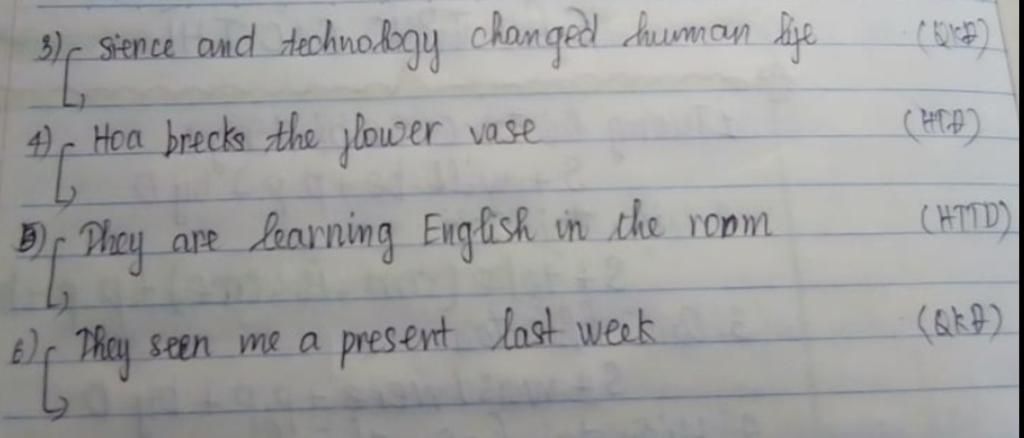 3) sience and technology changed human life (QKĐ)
4) Hoa brecks the flower vase (HTĐ)
5) They are learning English in the room (HTTD)
6) They seen me a present last week (QKĐ)